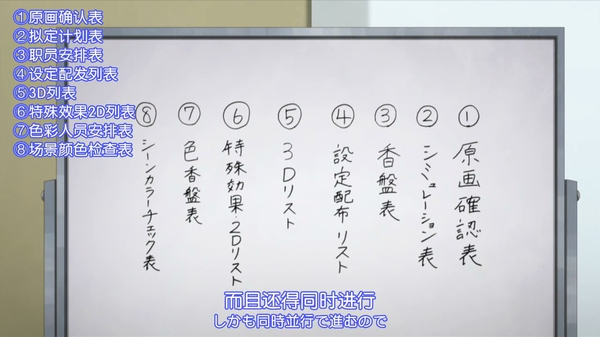 ①原画确认表
②拟定计划表
③职员安排表
④设定配发列表
⑤3D列表
⑥特殊效果2D列表
⑦色彩人员安排表
⑧场景颜色检查表
① 原画確認表
② シミュレーション表
③ 香盤表
④ 設定配布リスト
⑤ 3Dリスト
⑥ 特殊効果2Dリスト
⑦ 色香盤表
⑧ シーンカラーチェック表
而且还得同时进行
しかも同時並行で進むので